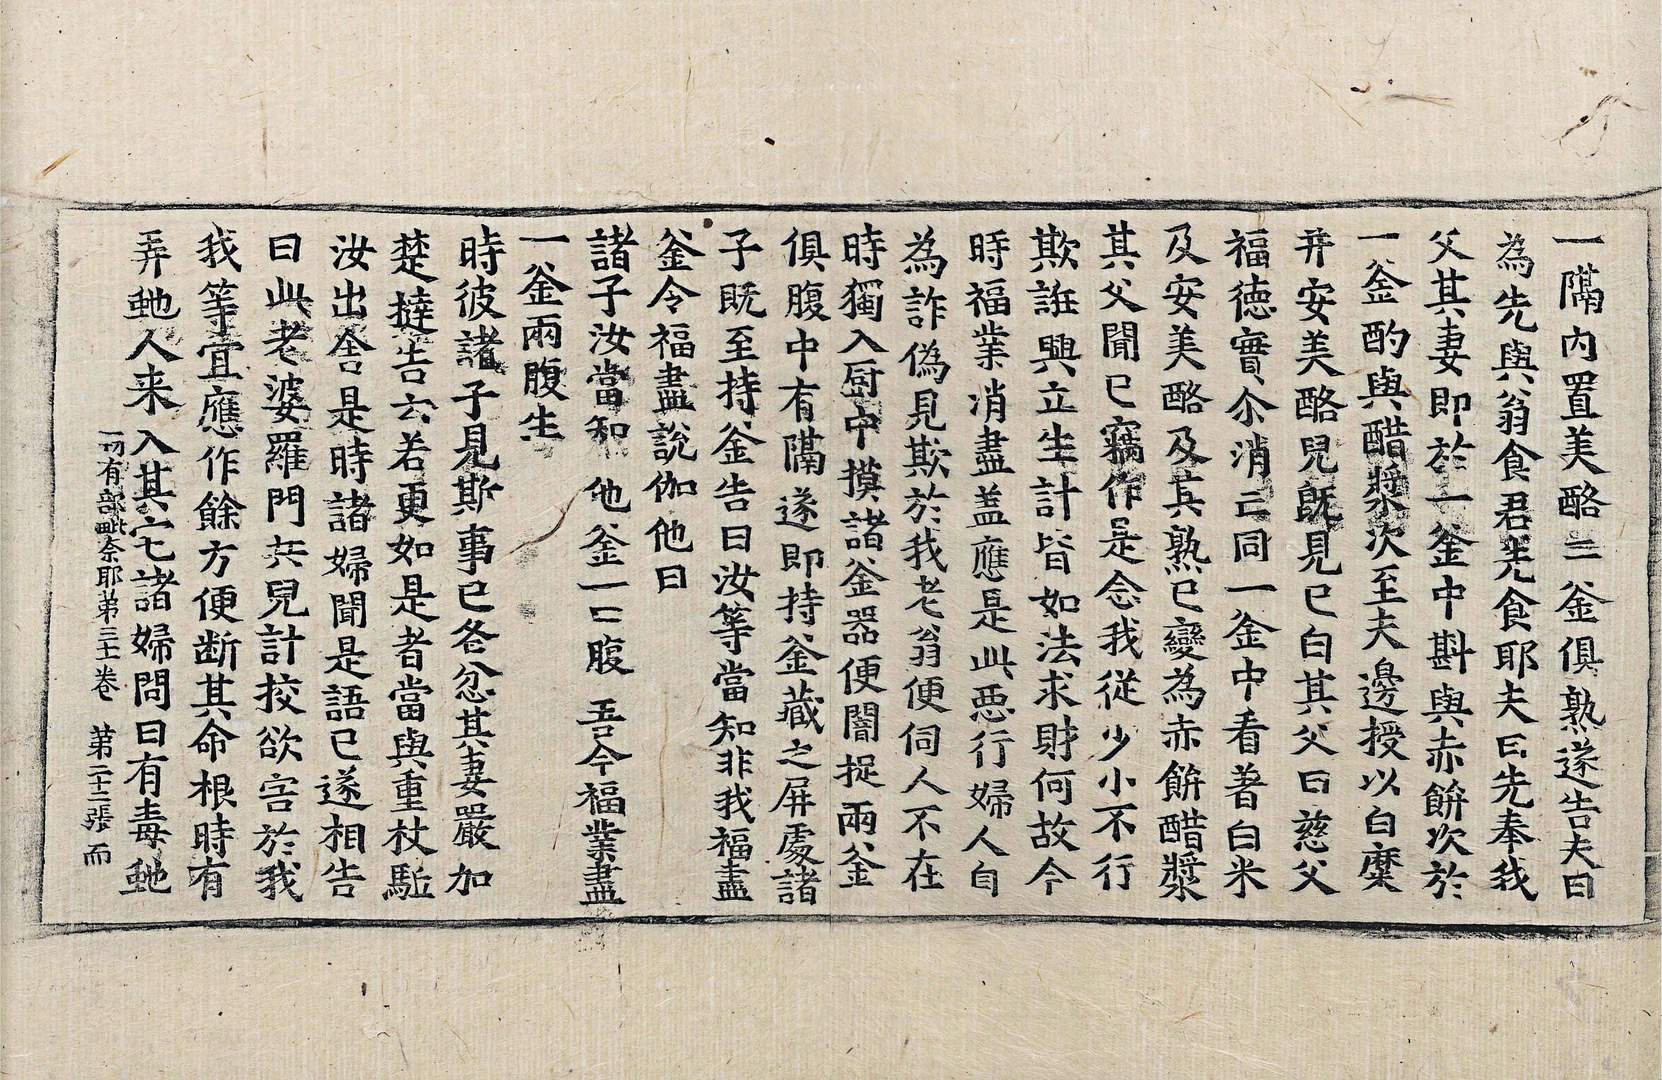 一隔內置美酪二釜俱熟遂告夫曰
為先與翁食君先食耶夫曰先奉我
父其妻即於一釜中斟與赤餅次於
一釜酌與醋漿次至夫邊授以白糜
并安美酪兒既見已白其父曰慈父
福徳實尒消亡同一釜中看著白米
及安美酪及其熟已變為赤餅醋漿
其父聞已竊作是念我從少小不行
欺誑興立生計皆如法求財何故今
時福業消盡蓋應是此惡行婦人自
為詐偽見欺於我老翁便伺人不在
時獨入厨中摸諸釜器便闇捉兩釜
俱腹中有隔遂即持釜藏之屏處諸
子既至持釜告曰汝等當知非我福盡
釜令福盡說伽他曰
諸子汝當知 他釜一亡腹 吾今福業盡
一釜兩腹生
時彼諸子見斯事已各忿其妻嚴加
楚撻告云若更如是者當與重杖駈
汝出舍是時諸婦聞是語已遂相告
曰此老婆羅門共兒計挍欲害於我
我等宜應作餘方便断其命根時有
弄虵人来入其宅諸婦問曰有毒虵
一切有部毗奈耶第三十卷 第二十二張 而